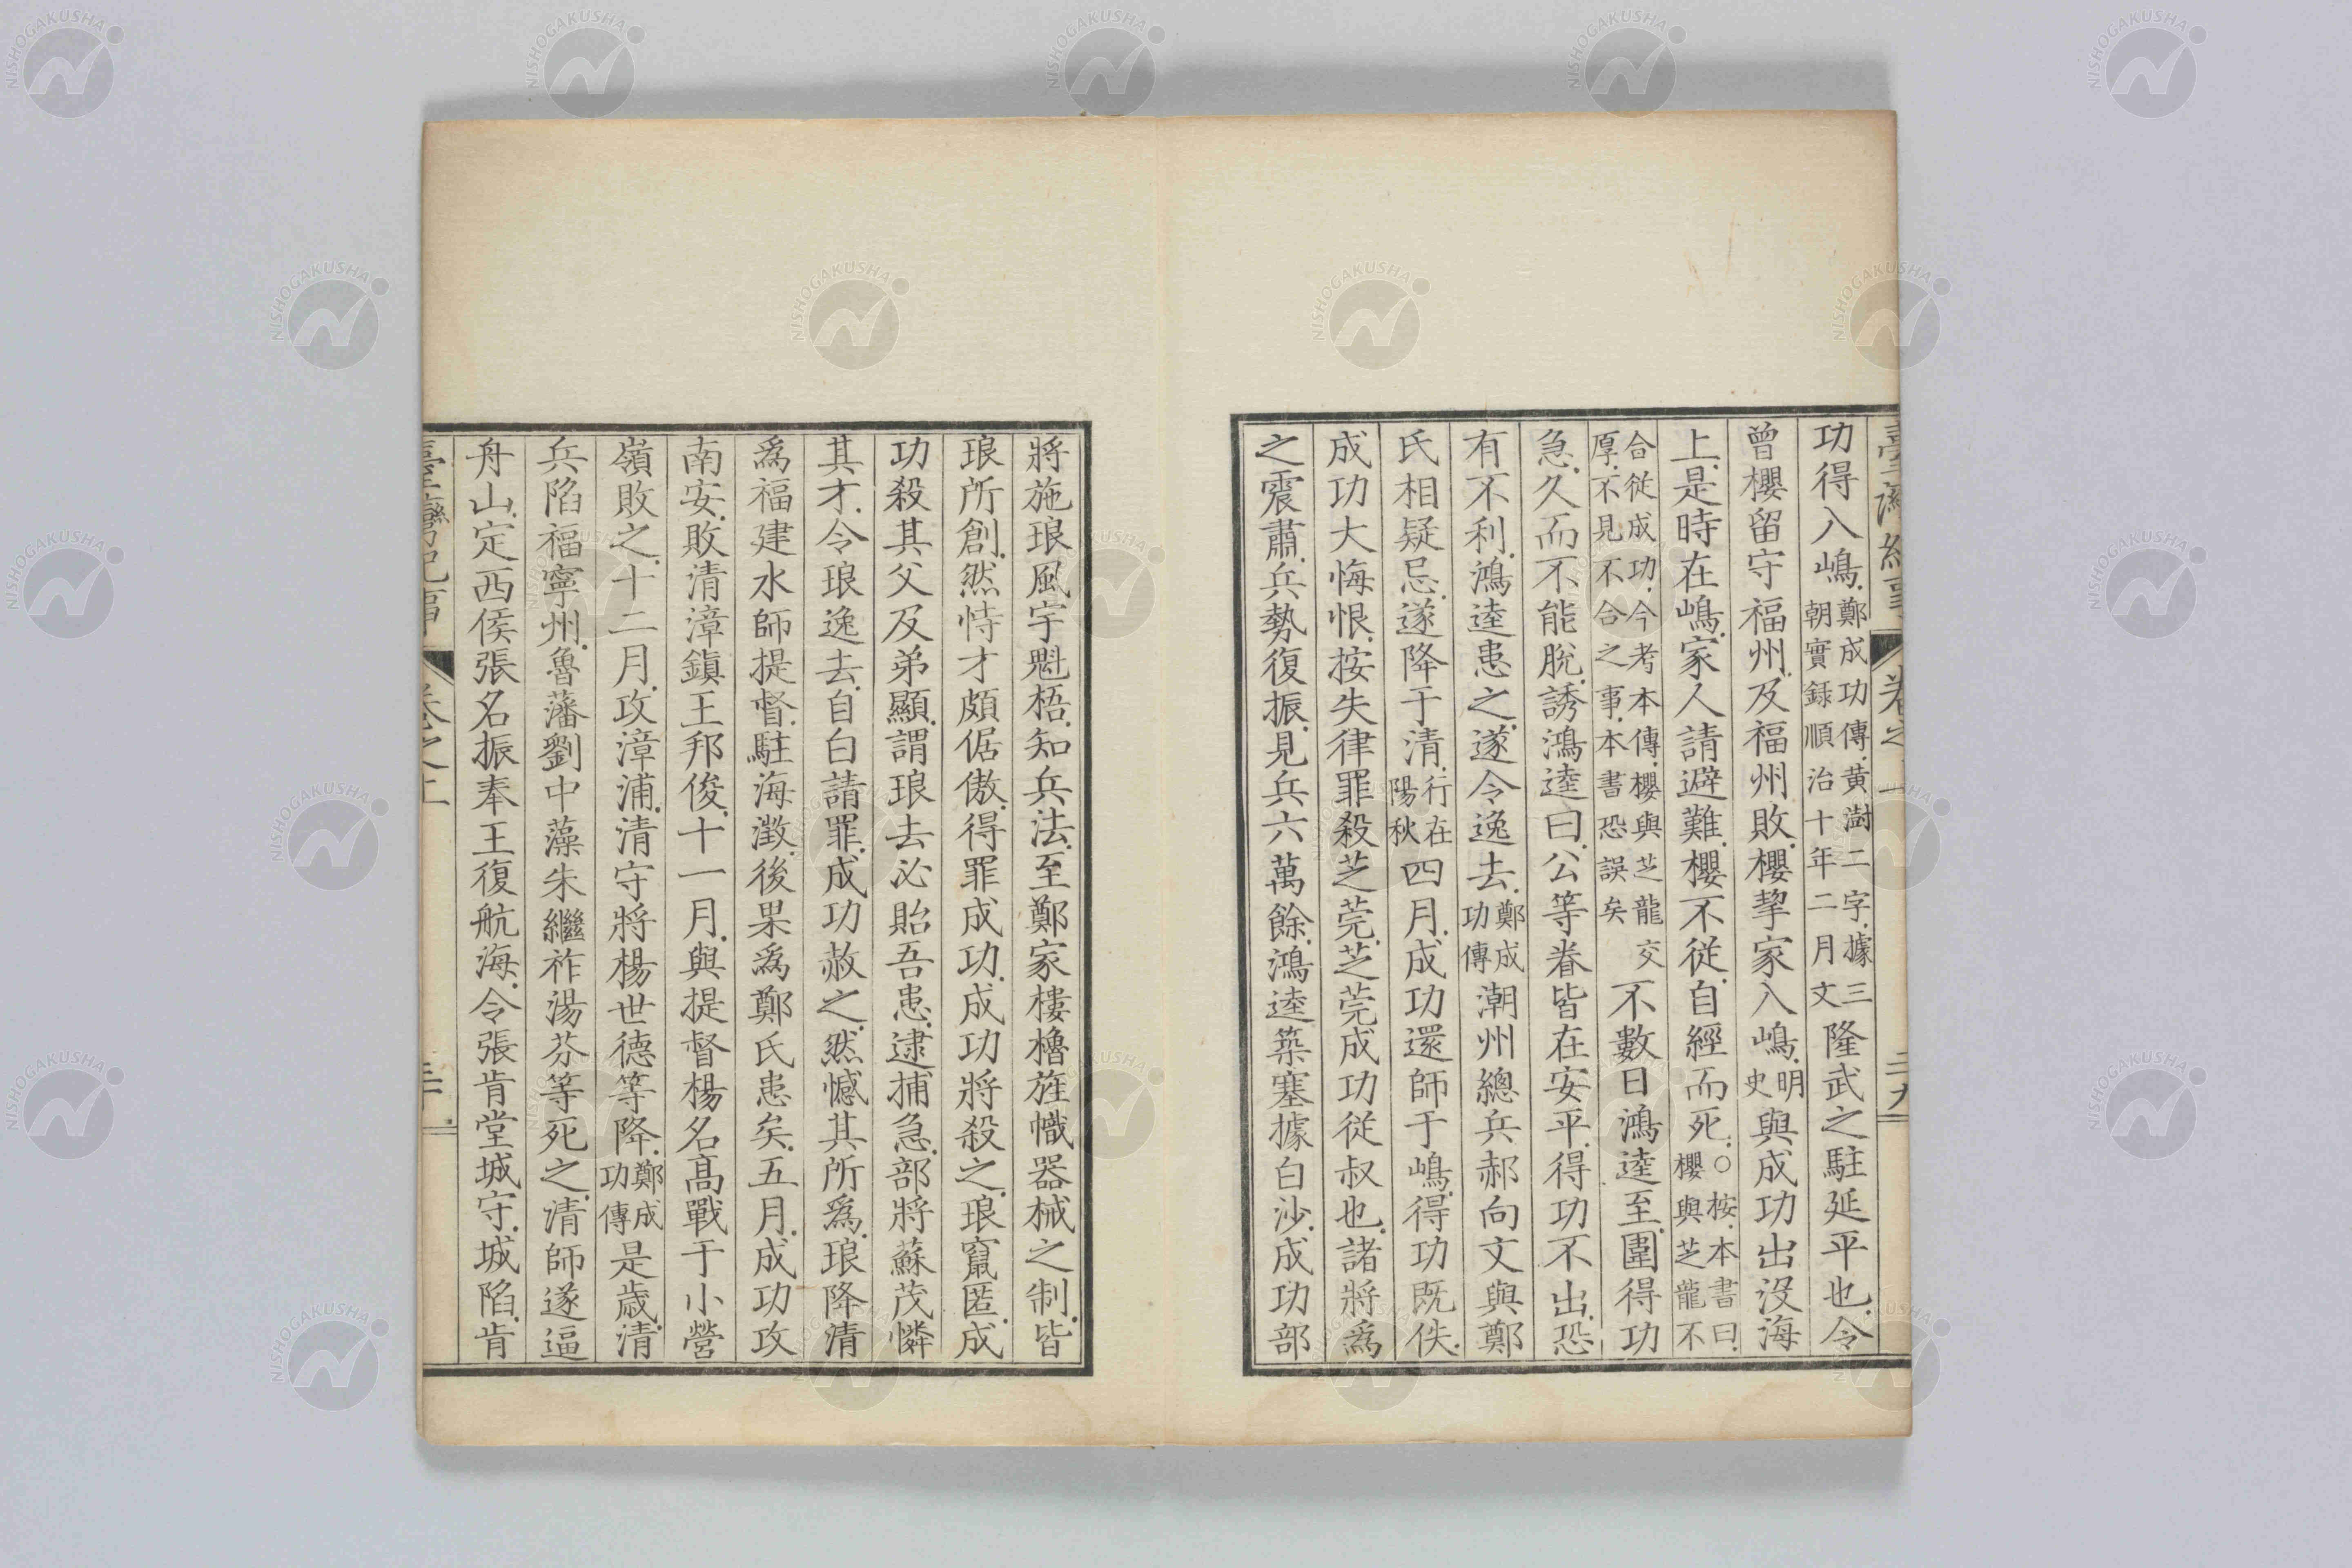 功得入嶋.鄭成功傳.黄澍二字.據三朝實録順治十年二月文隆武之駐延平也.令
曾櫻留守福州.及福州敗.櫻挈家入嶋.明史與成功出没海
上.是時在嶋.家人請避難.櫻不從.自經而死.○按.本書曰.櫻與芝龍不
合従成功.今考本傳.櫻與芝龍交厚.不見不合之事.本書恐誤矣不數日鴻逵至.圍得功
急.久而不能脫.誘鴻逵曰.公等眷皆在安平.得功不出.恐
有不利.鴻逵患之.遂令逸去.鄭成功傳潮州總兵郝向文與鄭
氏相疑忌.遂降于清.行在陽秋四月.成功還師于嶋.得功既佚.
成功大悔恨.按失律罪殺芝莞.芝莞成功從叔也.諸將爲
之震肅.兵勢復振.見兵六萬餘.鴻逵築塞據白沙.成功部
將施琅風宇魁梧.知兵法.至鄭家樓櫓旌幟器械之制.皆
琅所創.然恃才頗倨傲.得罪成功.成功將殺之.琅竄匿.成
功殺其父及弟顯.謂琅去必貽吾患.逮捕急.部將蘇茂憐
其才.令琅逸去.自白請罪.成功赦之.然憾其所爲.琅降清
爲福建水師提督.駐海澂.後果爲鄭氏患矣.五月.成功攻
南安.敗清漳鎭王邦俊.十一月.與提督楊名髙戰于小營
嶺敗之.十二月.攻漳浦.清守將楊世德等降.鄭成功傳是歳.清
兵陷福寧州.魯藩劉中藻朱繼祚湯芬等死之.清師遂逼
舟山.定西侯張名振奉王復航海.令張肯堂城守.城陷.肯